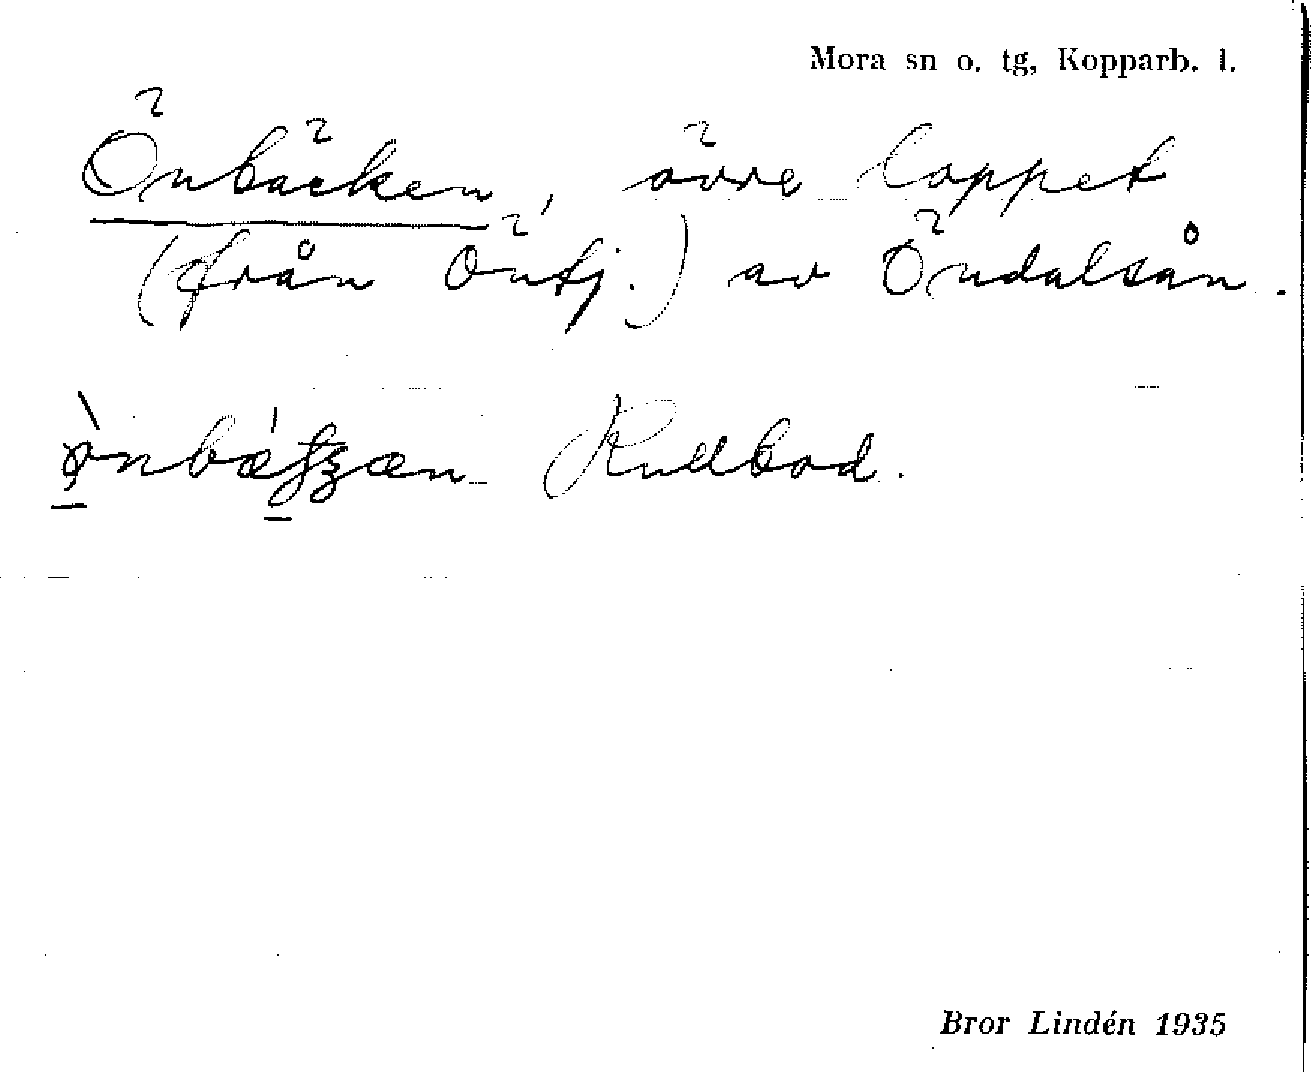 Mora sn o. tg, Kopparb. l.
Önbäcken, övre loppet
(från Öntj.) av Öndalsån.
Kullbod.
Bror Lindén 1935